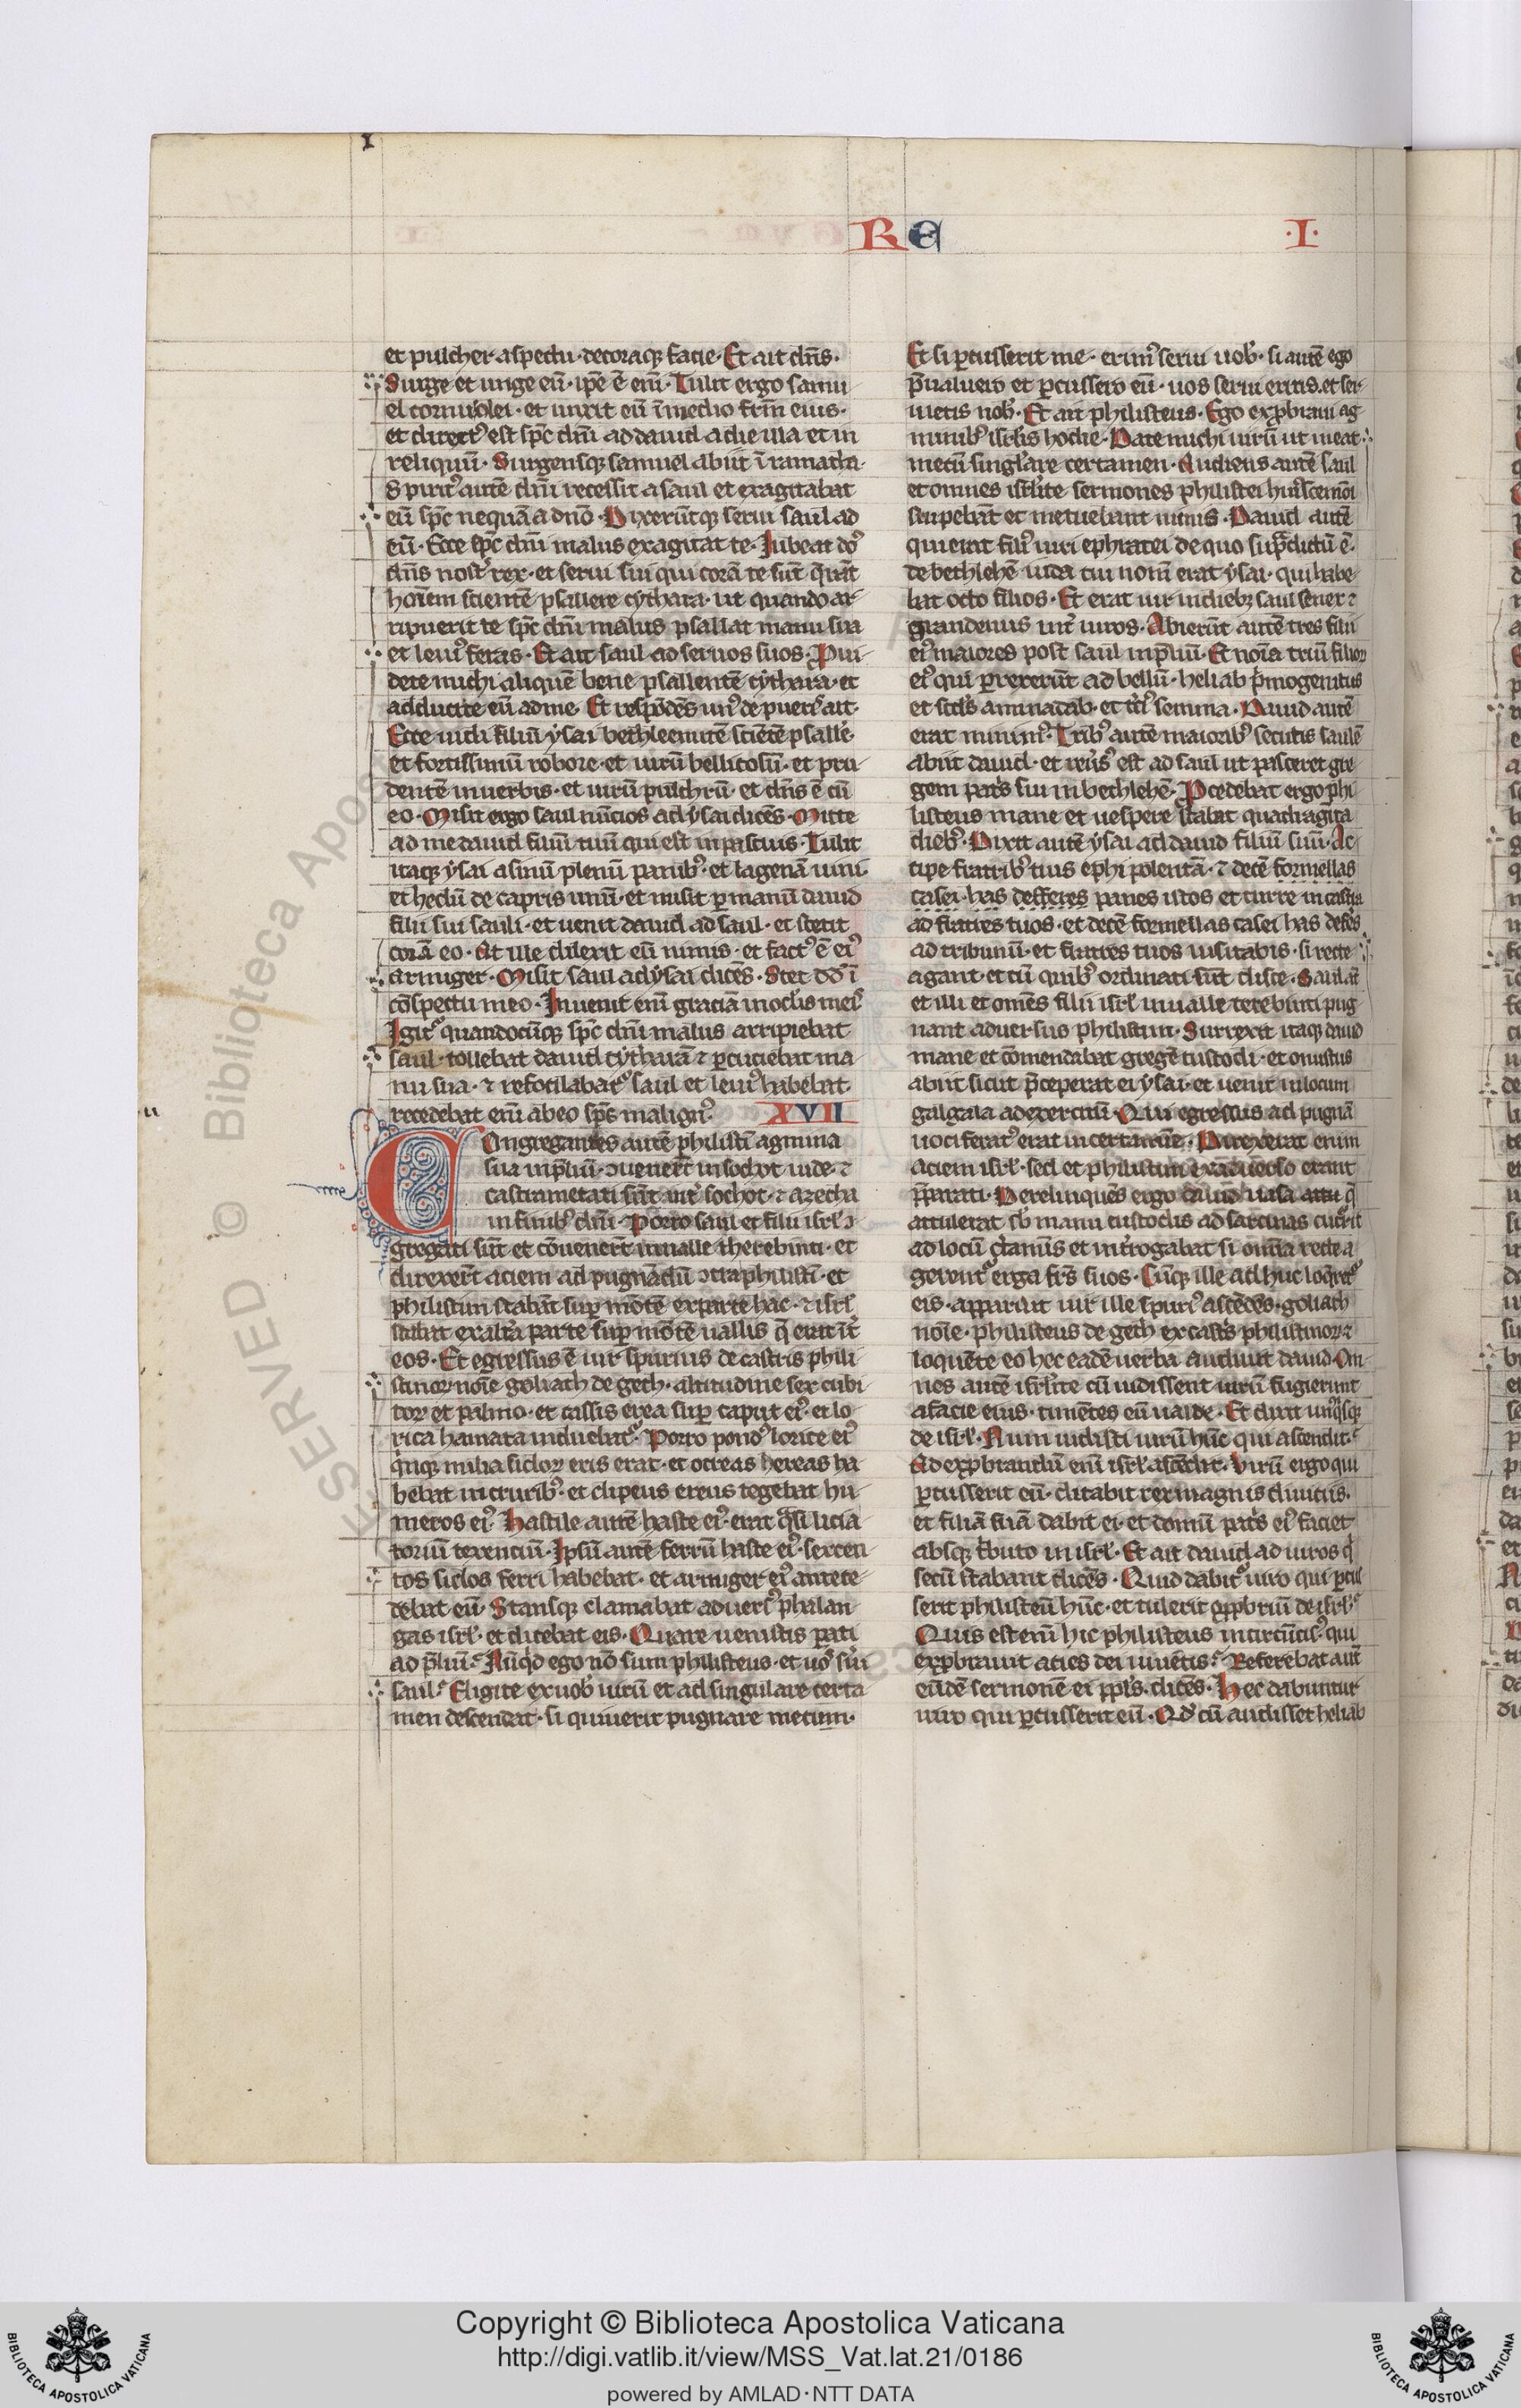 RE
·I·
et pulcher aspectu · decoraq; facie · Et ait dn̄s ·
Surge et unge eū · ip̄e ē em̄ · Tulit ergo samu
el cornu olei · et unxit eū ī medio fr̄m eius ·
et directꝰ est sp̄c dn̄i ad dauid a die illa et in
reliquū · Surgensq; samuel abiit ī ramatha ·
Spiritꝰ autē dn̄i recessit a saul et exagitabat
eū sp̄c nequā a dn̄o · Dixerūtq; serui saul ad
eū · Ecce sp̄c dn̄i malus exagitat te · Iubeat
dn̄s nost̉ rex · et serui sui qui corā te sūt q̄rāt
hoīem scientē psallere cythara · ut quando ar
ripuerit te sp̄c dn̄i malus psallat manu sua
et leuiꝰ feras · Et ait saul ad seruos suos · Pui
dete michi aliquē bene psallentē cythara · et
adducite eū ad me · Et respōdēs unꝰ de pueris ait ·
Ecce uidi filiū ysai bethleemitē sciētē psalle̓ ·
et fortissimū robore · et uirū bellicosū · et pru
dentē in uerbis · et uirū pulchrū · et dn̄s ē cū
eo · Misit ergo saul nūcios ad ysai dicēs · Mitte
ad me dauid filiū tuū qui est in pascuis · Tulit
itaq; ysai asinū plenū panibꝰ · et lagenā uini ·
et hedū de capris unū · et misit ꝑ manū dauid
filii sui sauli · et uenit dauid ad saul · et stetit
corā eo · At ille dilexit eū nimis · et factꝰ ē eiꝰ
armiger · Misit saul ad ysai dicēs · Stet dd̄ ī
cōspectu meo · Inuenit em̄ graciā in oculis meis
Igit̉ quandocūq; sp̄c dn̄i malus arripiebat
saul · tollebat dauid cytharā ⁊ ꝑcuciebat ma
nu sua · ⁊ refocilabat̉ saul et leuiꝰ habebat ·
recedebat em̄ ab eo sp̄s malignꝰ · XVII
Congregantes autē philistī agmina
sua in p̄liū · ꝯuenerūt in sochot iude · ⁊
castrametati sūt int̉ sochot · ⁊ azecha
in finibꝰ dn̄i · Porro saul et filii isrl̓ ꝯ
gregati sūt et cōuenerūt in ualle therebinti · et
direxerūt aciem ad pugnādū ꝯtra philistī · et
philistim stabāt sup̱ mōtē ex parte hac · ⁊ isrl̓
stabat ex altera parte sup̱ mōtē uallis q̄ erat īt̉
eos · Et egressus ē uir spurius de castris phili
stinoꝝ noīe goliath de geth · altitudine sex cubi
toꝝ et palmo · et cassis erea sup̱ caput eiꝰ · et lo
rica hamata induebat̉ · Porro pondꝰ lorice eiꝰ
quinq; milia sicloꝝ eris erat · et ocreas hereas ha
bebat in cruribꝰ · et clipeus ereus tegebat hu
meros eiꝰ · Hastile autē haste eiꝰ · erat quasi licia
toriū texenciū · Ipsū autē ferrū haste eiꝰ · sexcen
tos siclos ferri habebat · et armiger eiꝰ antece
debat eū · Stansq; clamabat aduersꝰ phalan
gas isrl̓ · et dicebat eis · Quare uenistis parati
ad p̄liū · Nūqd̓ ego nō sum philisteus · et uos s̓ui
saul · Eligite ex uob̓ uirū et ad singulare certa
men descendat · si quiuerit pugnare mecum ·
Et si ꝑcusserit me · erimꝰ serui uob̓ · si autē ego
p̄ualuero et ꝑcussero eū · uos serui eritis · et ser
uietis nob̓ · Et ait philisteus · Ego exprobraui ag
minibꝰ isrl̓is hodie · Date michi uirū ut ineat
mecū singl̓are certamen · Audiens autē saul
et omnes isrl̓ite sermones philistei
stupebāt et metuebant nimis · Dauid autē
qui erat filiꝰ uiri ephratei de quo sup̄dictū ē ·
de bethlehē iuda cui nomen erat ysai · qui habe
bat octo filios · Et erat uir in diebꝫ saul senex ⁊
grandeuus int̉ uiros · Abierūt autē tres filii
eiꝰ maiores post saul in p̄liū · Et noīa triū filioꝝ
eiꝰ qui ꝑrexerūt ad bellū · heliab p̓mogenitus
et scd̓s aminadab · et t̓ciꝰ semma · Dauid autē
erat minimꝰ · Tribꝰ autē maioribꝰ secutis saulē
abiit dauid · et reuersꝰ est ad saul ut pasceret gre
gem patris sui in bethlehē · Pcedebat ergo phi
listeus mane et uespere · stabat quadraginta
diebꝰ · Dixit autē ysai ad dauid filiū suū · Ac
cipe fratribꝰ tuis ephi polentā · ⁊ decē formellas
casei · has defferes panes istos et curre in castra
ad fratres tuos · et decē formellas casei has defēs
ad tribunū · et fratres tuos uisitabis · si recte
agant · et cū quibꝰ ordinati sūt disce · Saul aūt
et illi et omēs filii isrl̓ in ualle terebinti pug
nant aduersus philistiim · Surrexit itaq; dauid
mane et cōmendabat gregē custodi · et onustus
abiit sicut p̄ceperat ei ysai · et uenit in locum
galgala ad exercitū · Qui egressus ad pugnā
uociferatꝰ erat in certamine · Direxerat enim
aciem isrl̓ · sed et philistiim ex aduerso erant
p̄parati · Derelinquēs ergo dauid uasa q̄
attulerat sb̓ manu custodis ad sarcinas cucurrit
ad locū certaminis et int̓rogabat si omīa recte a
gerent̉ erga fr̄s suos · Cūq; ille adhuc loqueret̉
eis · apparuit uir ille spuriꝰ ascēdēs · goliath
noīe · philisteus de geth ex castris philistinoꝝ ⁊
loquēte eo hec eadē uerba audiuit dauid · Om
nes autē isrl̓ite cū uidissent uirū fugierunt
a facie eius · timētes eū ualde · Et dixit unꝰqisq;
de isrl̓ · Num uidisti uirū hūc qui ascendit ·
Ad exprobrandū em̄ isrl̓ ascēdit · Virū ergo qui
ꝑcusserit eū · ditabit rex magnis diuitiis ·
et filiā suā dabit ei · et domū patris eiꝰ faciet
absq; t̓buto in isrl̓ · Et ait dauid ad uiros q̓
secū stabant dicēs · Quid dabit̉ uiro qui ꝑcus
serit philisteū hūc · et tulerit opprobriū de isrl̓
Quis est em̄ hic philisteus incircūcisꝰ · qui
exprobrauit acies dei uiuētis · Referebat aut̄
eūdē sermonē ei ppl̓s · dicēs · Hec dabuntur
uiro qui ꝑcusserit eū · Qd̓ cū audisset heliab
Copyright © Biblioteca Apostolica Vaticana
http://digi.vatlib.it/view/MSS_Vat.lat.21/0186
powered by AMLAD · NTT DATA
BIBLIOTECA APOSTOLICA VATICANA
BIBLIOTECA APOSTOLICA VATICANA